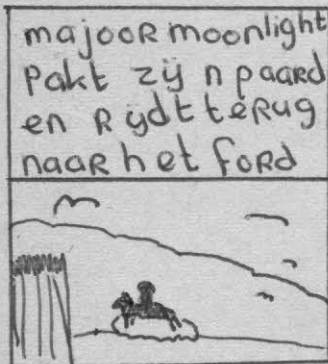 majoor moonlight
pakt zijn paard
en rijdt terug
naar het ford